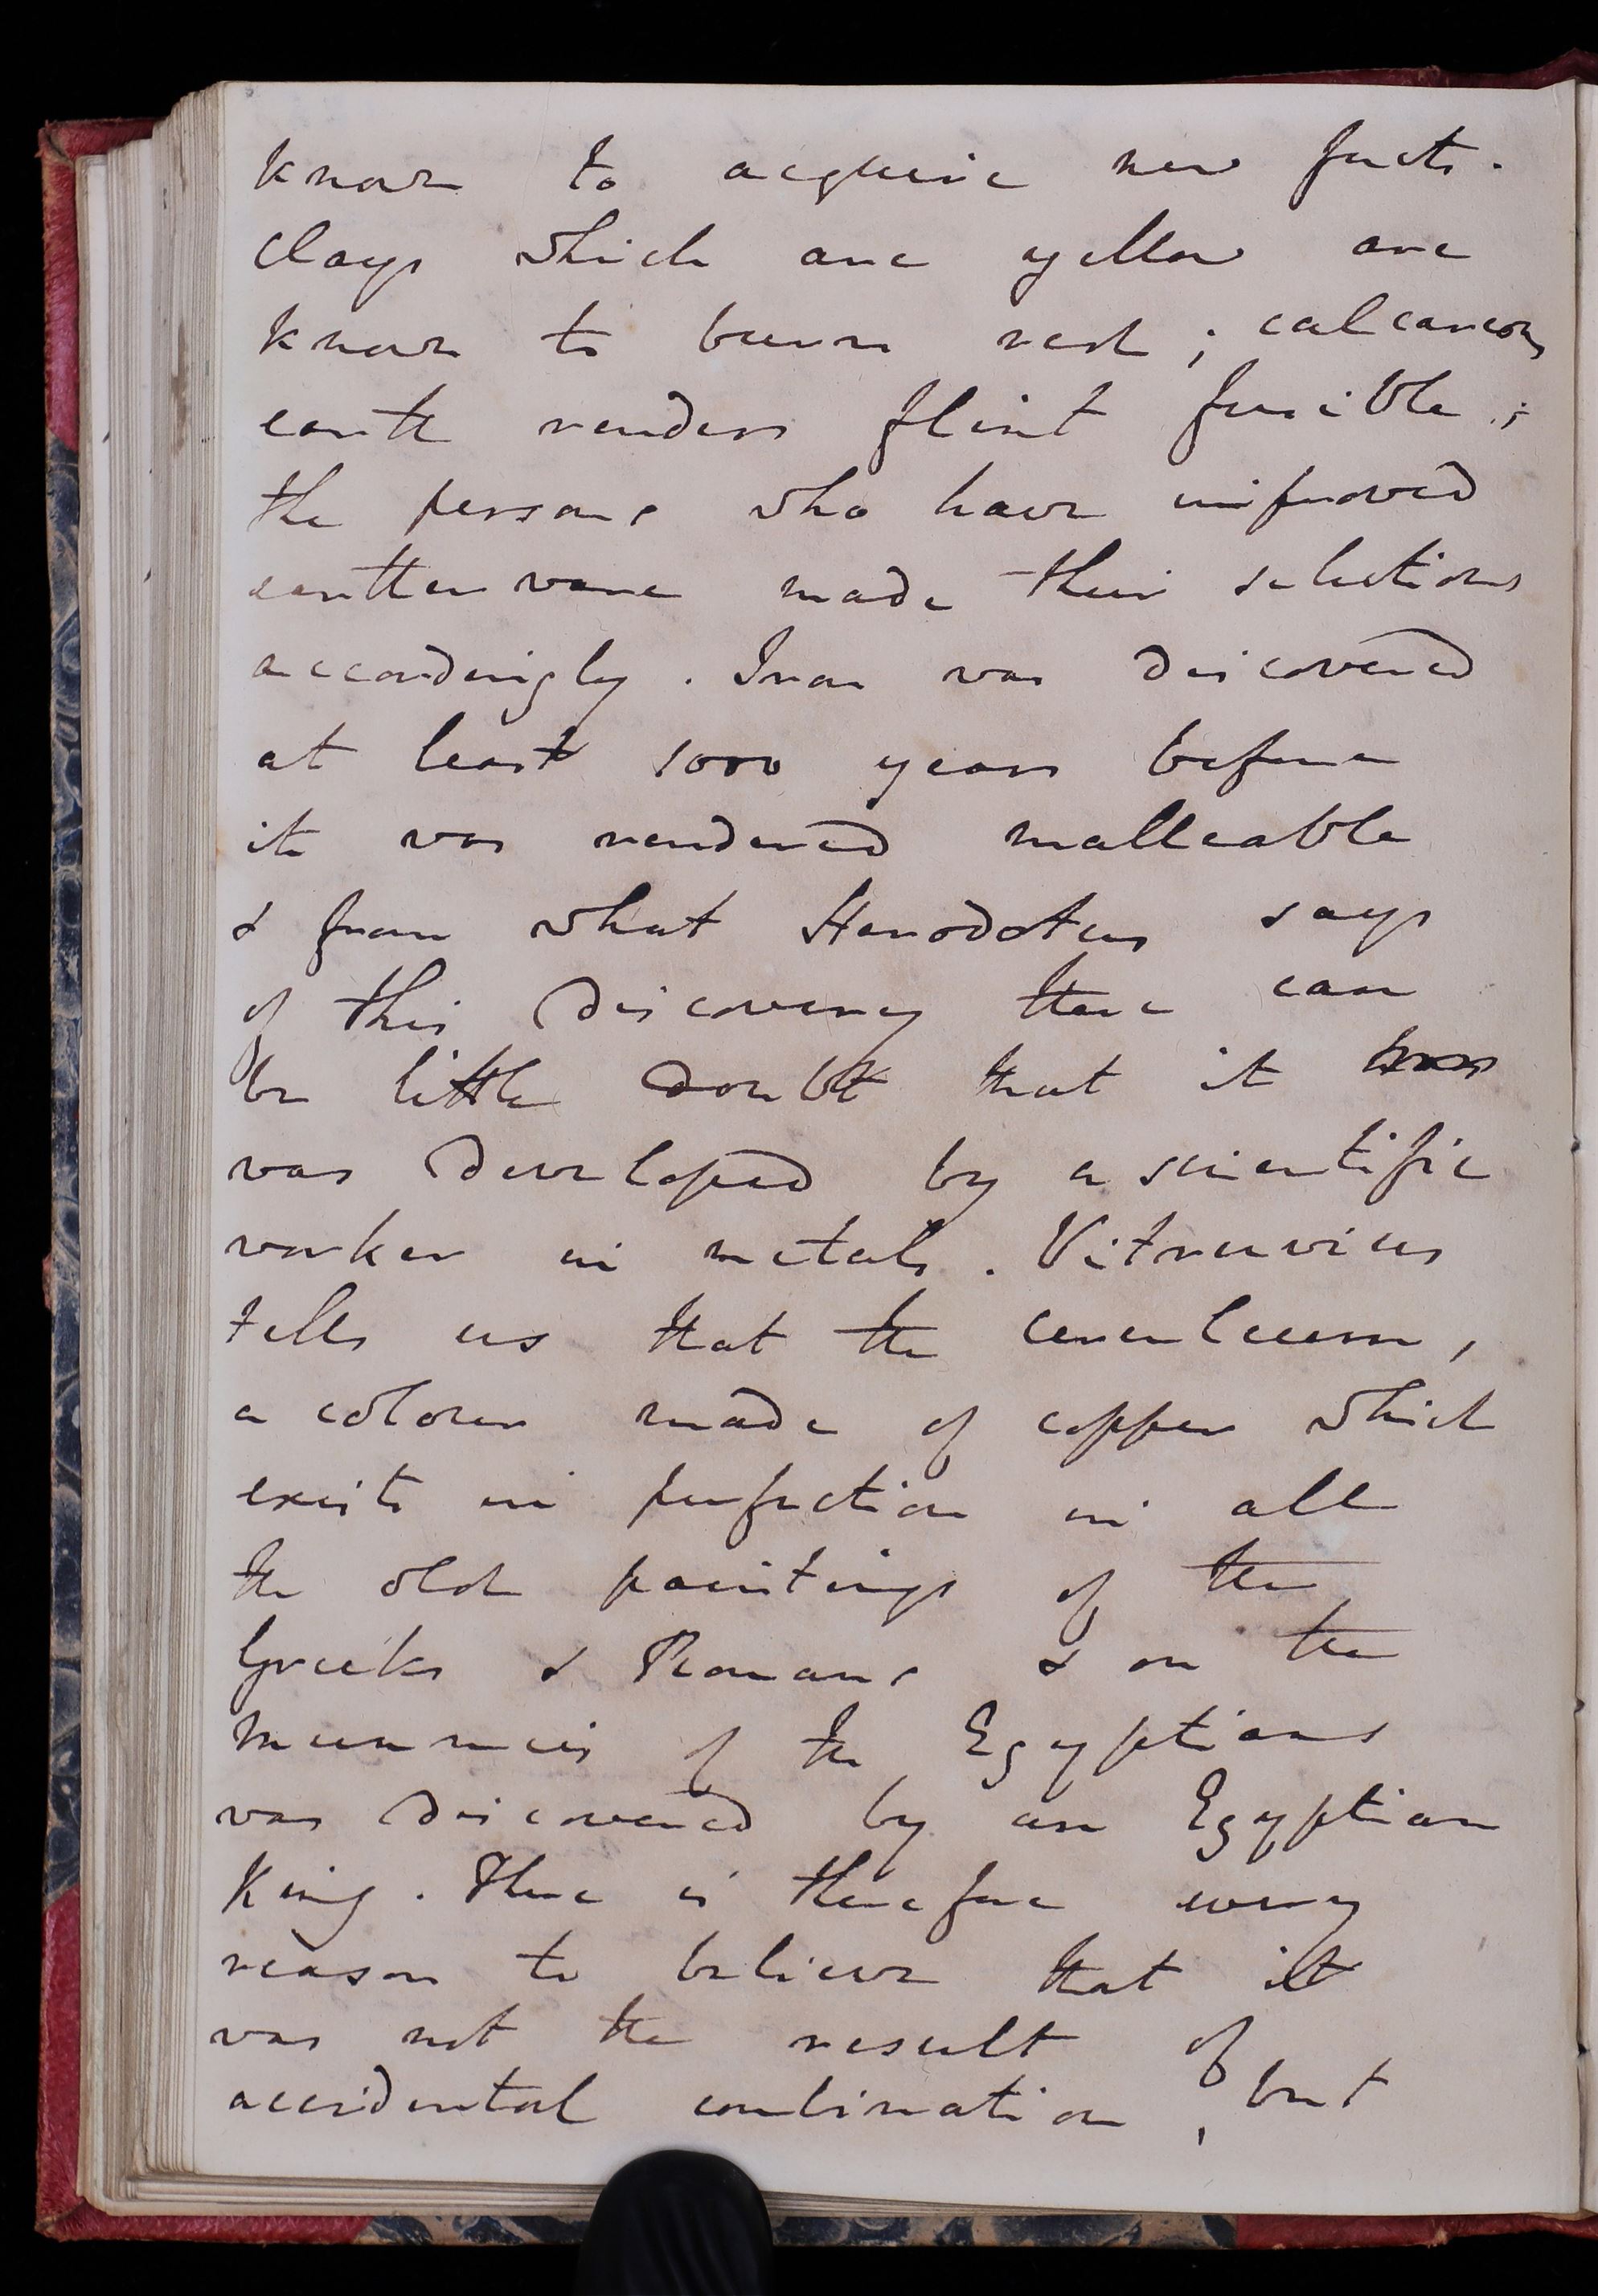 known to acquire new facts.
Clays which are yellow are
known to burn red; calcareous
earth renders flint fusible;
the persons who have improved
earthenware made their selections
accordingly. Iron was discovered
at least 1000 years before
it was rendered malleable
& from what Herodotus says
of this discovery there can
be little doubt that it
was developed by a scientific
worker in metals. Vitruvius
tells us that the ceruleum,
a colour made of copper which
exists in perfection in all
the old paintings of the
Greeks & Romans & on the
mummies of the Egyptians
was discovered by an Egyptian
King. There is therefore every
reason to believe that it
was not the result of
accidental combination, but